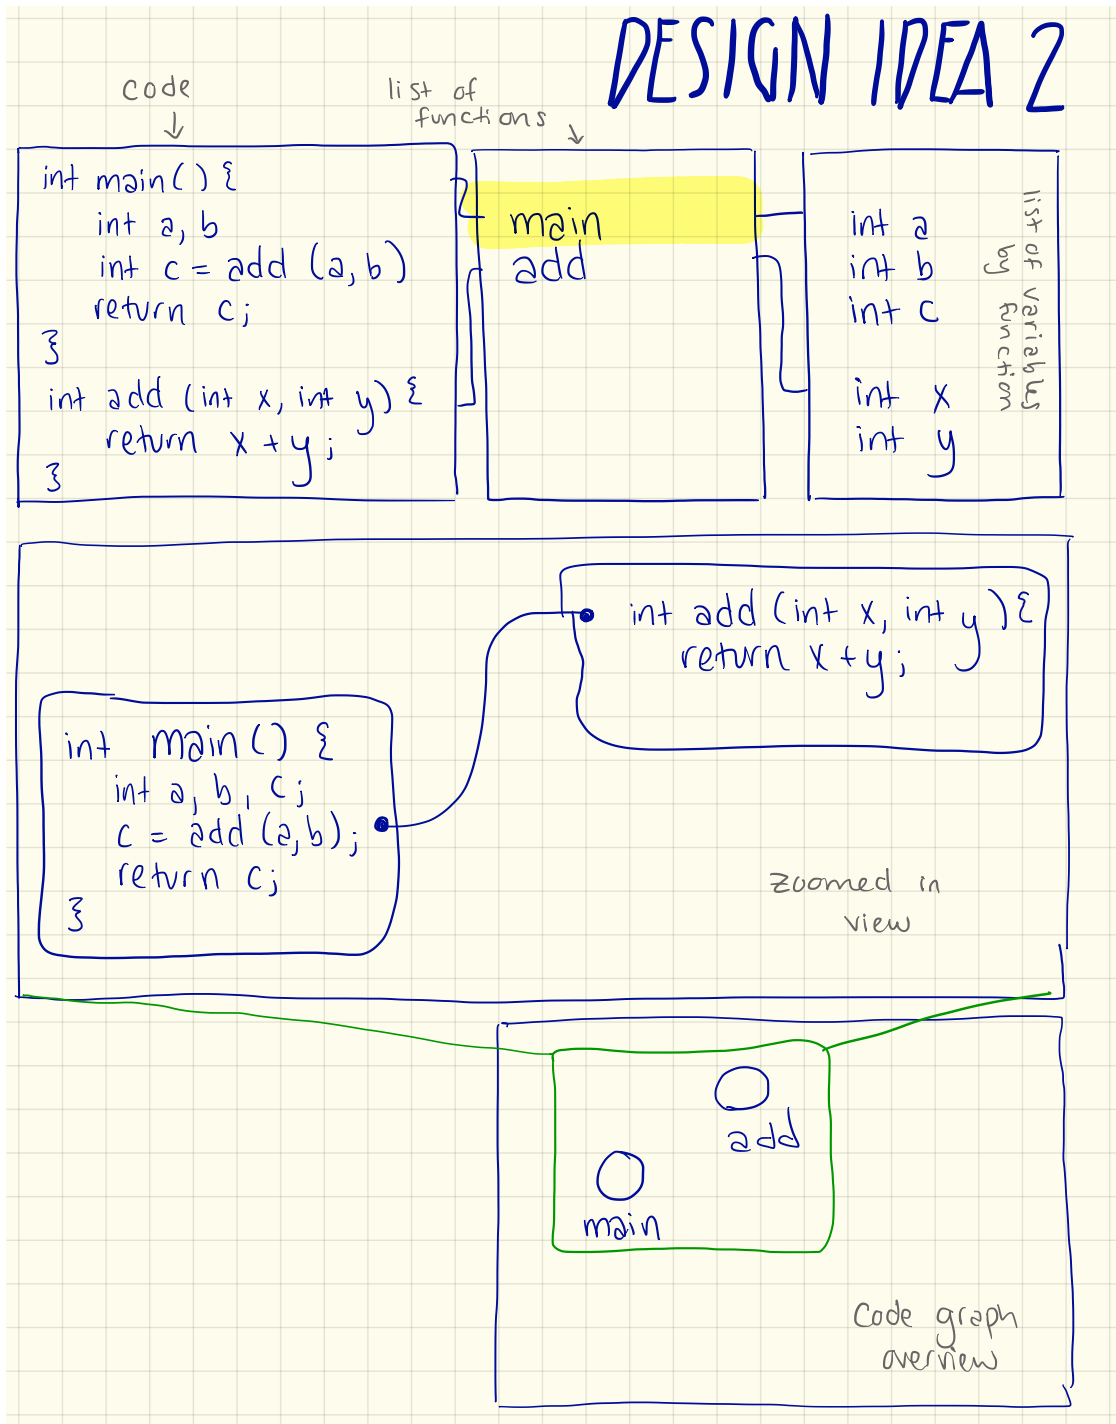 DESIGN IDEA 2
code
list of
functions
int main() {
int a, b
int c = add (a, b)
return c;
}
int add (int x, int y) {
return x + y;
}
main
add
int a
int b
int c
int x
int y
list of variables
by function
int add (int x, int y) {
return x + y;
int main() {
int a, b, c;
c = add (a,b);
return c;
}
zoomed in
view
add
main
Code graph
overview